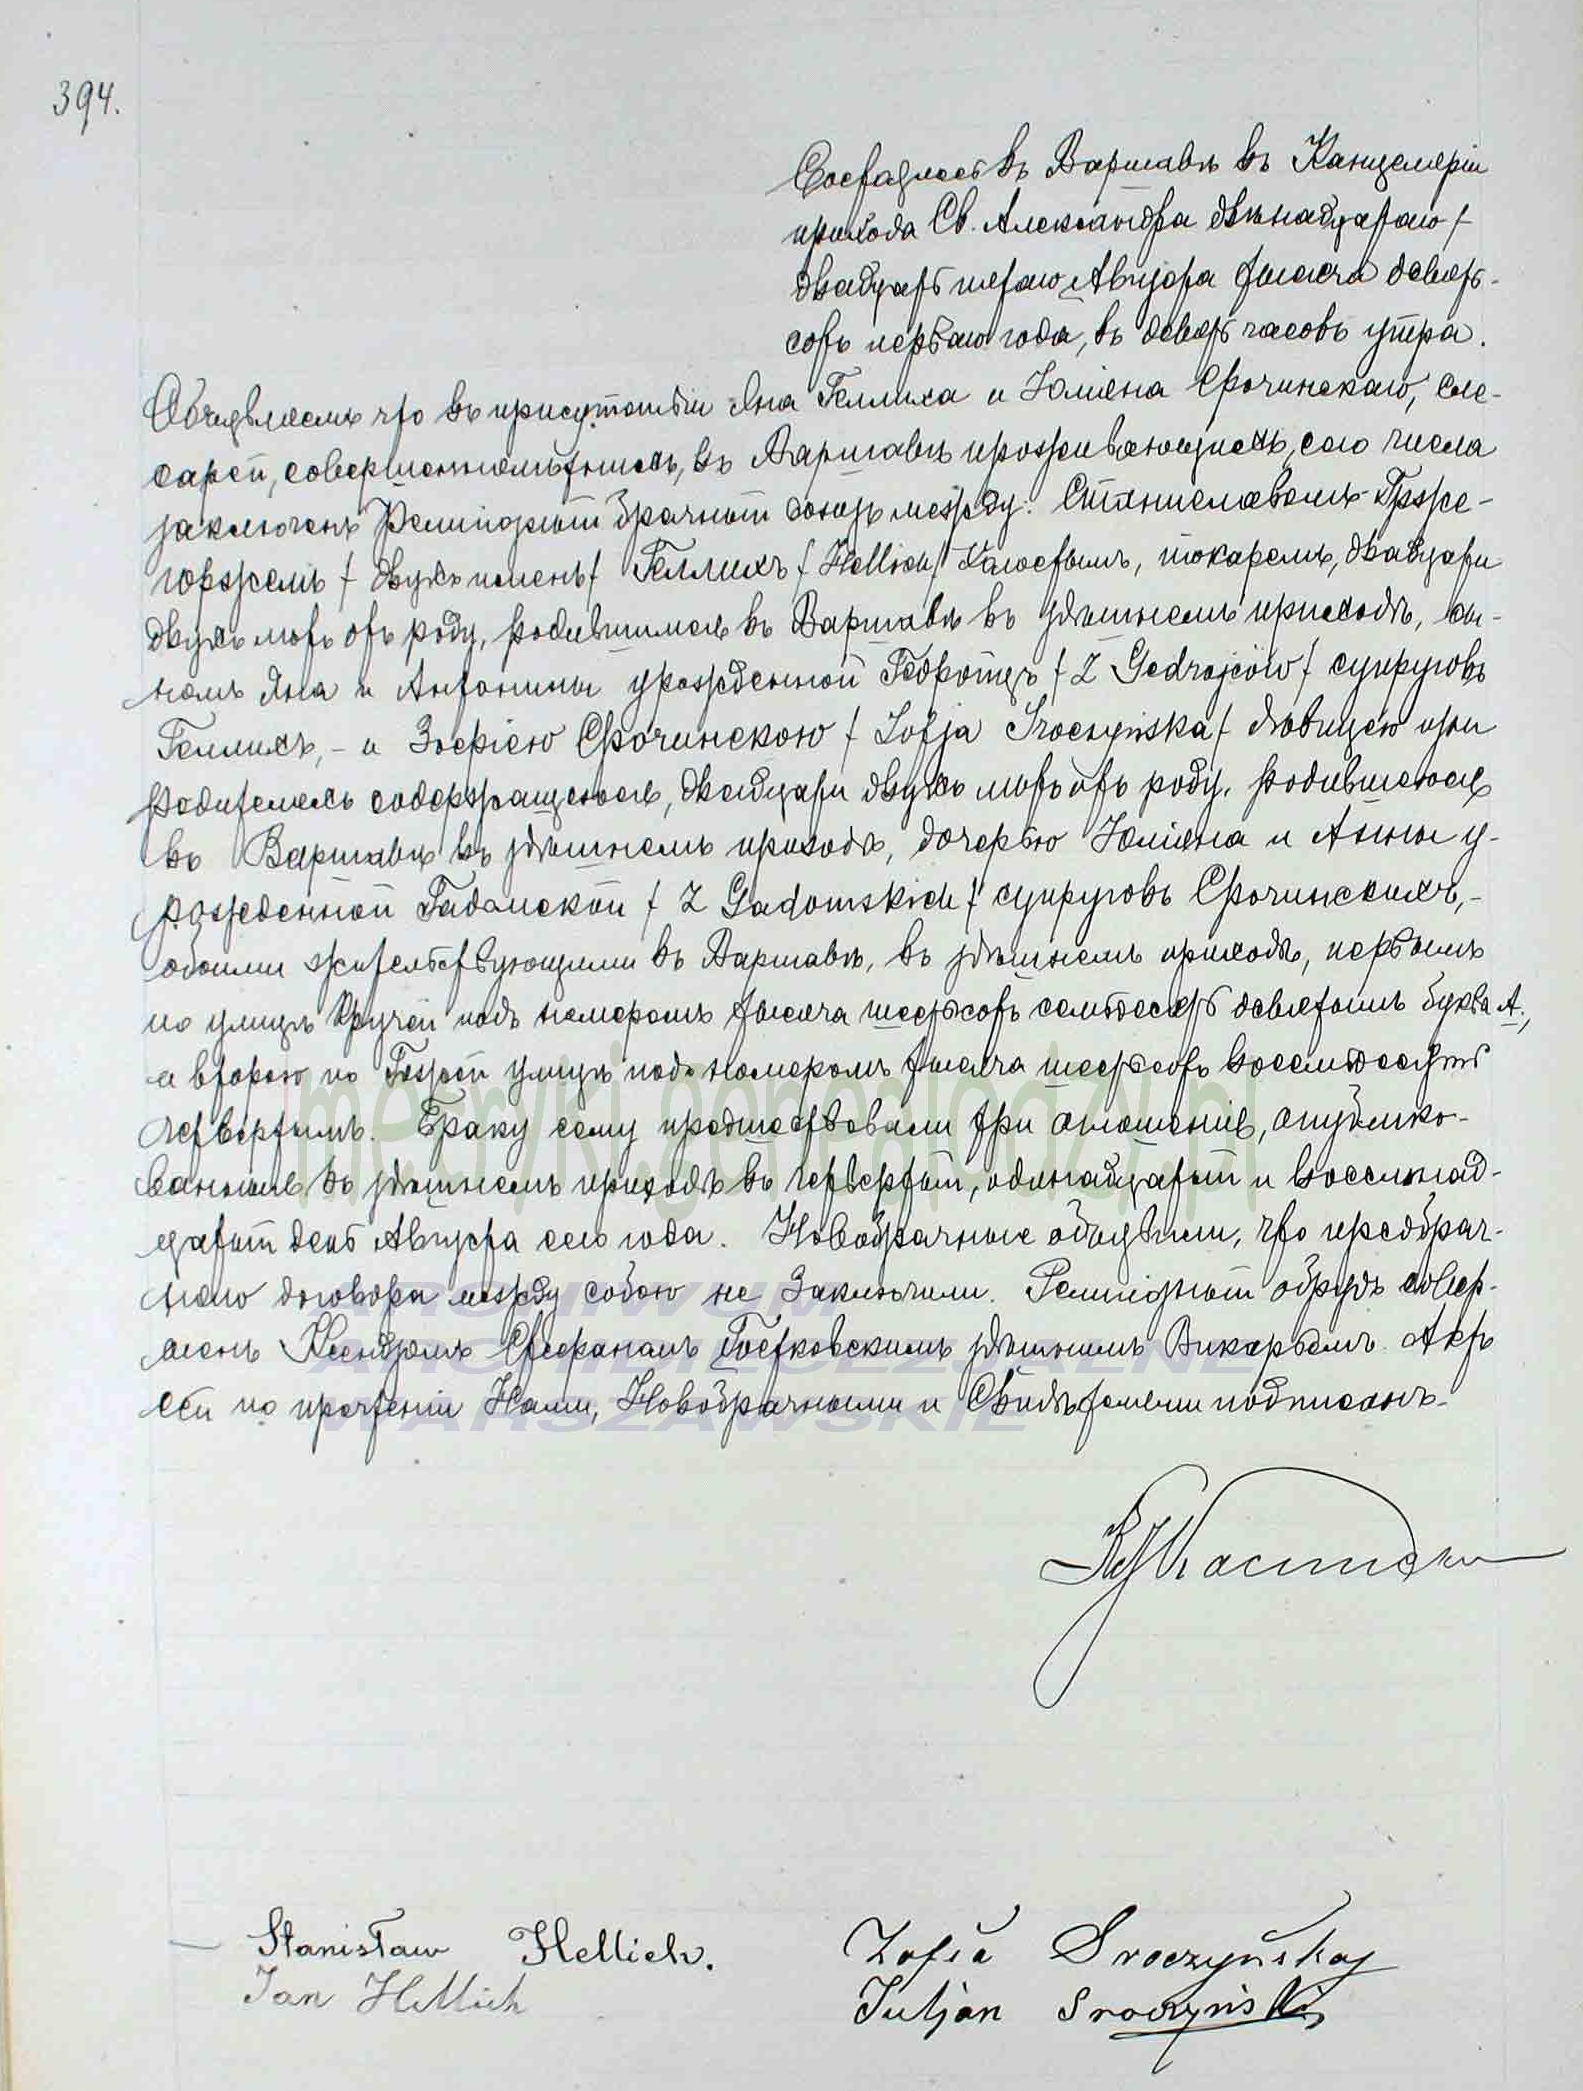 394.
Состоялось въ Варшавѣ въ Канцеляріи
прихода Св. Александра двѣнадцатаго /
двадцать пятаго Августа тысяча девять-
сотъ перваго года, въ девять часовъ утра.
Объявляемъ что въ присутствіи Яна Геллиха и Юліяна Срочинскаго, сле-
сарей, совершеннолѣтнихъ, въ Варшавѣ проживающихъ, сего числа
заключенъ Религіозный брачный союзъ между: Станиславомъ-Грже-
горжемъ / двухъ именъ / Геллихъ / Hellich / Холостымъ, токаремъ, двадцати
двухъ лѣтъ отъ роду, родившимся въ Варшавѣ въ здѣшнемъ приходѣ, сы-
номъ Яна и Антонины урожденной Гедройцъ / z Gedrojców / супруговъ
Геллихъ, - и Зофіею Срочинскою / Zofja Sroczyńska / дѣвицею при
родителяхъ содержащеюся, двадцати двухъ лѣтъ отъ роду, родившеюся
въ Варшавѣ въ здѣшнемъ приходѣ, дочерью Юліяна и Анны у-
рожденной Гадомской / z Gadomskich / супруговъ Срочинскихъ, -
обоими жительствующими въ Варшавѣ, въ здѣшнемъ приходѣ, первымъ
по улицѣ Кручей подъ номеромъ тысяча шестьсотъ семьдесятъ девятымъ буква А.,
а второю по Гожей улицѣ подъ номеромъ тысяча шестьсотъ восемьдесятъ
четвертымъ. Браку сему предшествовали три оглашенія, опублико-
ванныя въ здѣшнемъ приходѣ въ четвертый, одинадцатый и восемнад-
цатый день Августа сего года. Новобрачные объявили, что предбрач-
наго договора между собою не Заключили. Религіозный обрядъ совер-
шенъ Ксендзомъ Стефаномъ Гостковскимъ здѣшнимъ Викаріемъ. Актъ
сей по прочтеніи Нами, Новобрачными и Свидѣтелями подписанъ.-
Stanisław Hellich. Zofia Sroczyńska
Jan Hellich Juljan Sroczyński
metryki.genealodzy.pl
ARCHIWUM
ARCHIDIECEZJALNE
WARSZAWSKIE